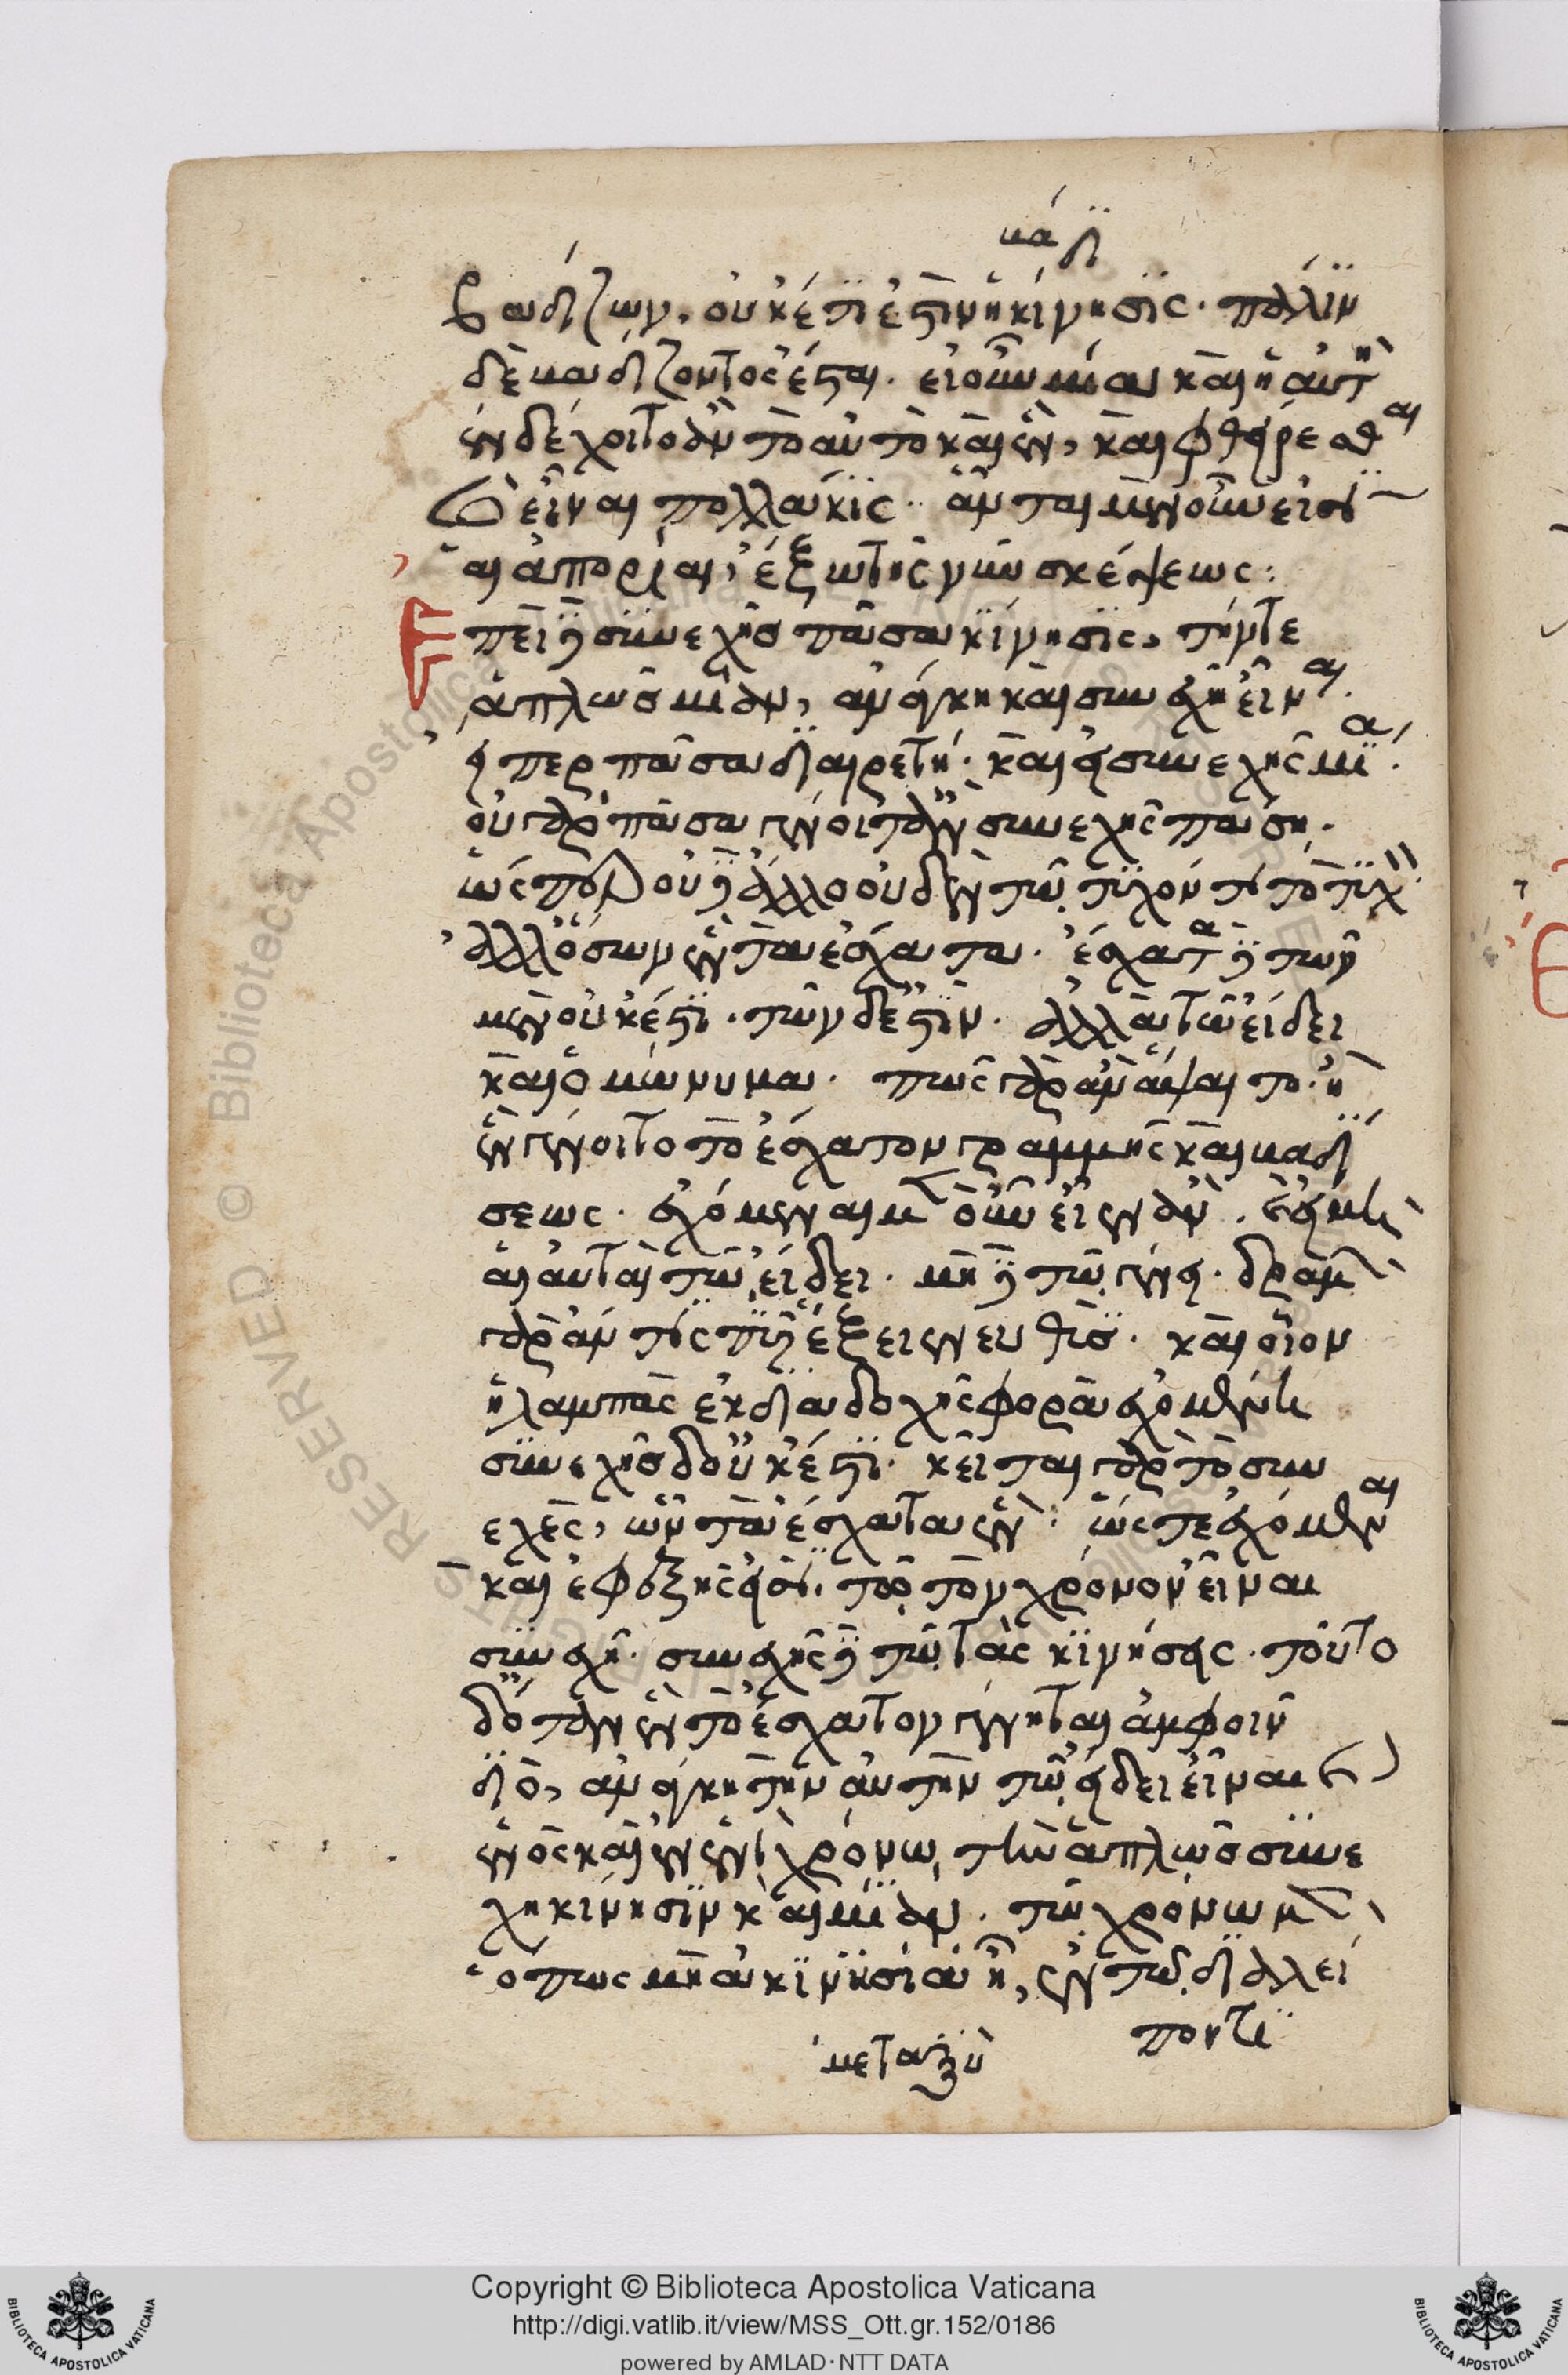 βάδι
βαδίζων, οὐκέτι ἐστιν ἡ κίνησις. πάλιν
δὲ βαδίζοντος ἔσται. εἰ οὖν μία καὶ ἡ αὐτὴ
ἐνδέχοιτο ἂν τὸ αὐτὸ καὶ ἓν, καὶ φθείρεσθαι
καὶ εἶναι πολλάκις. αὗται μὲν οὖν εἰσὶν
αἱ ἀπορίαι, ἔξω τῆς νῦν σκέψεως:
Ἐπεὶ δὲ συνεχὴς πᾶσα κίνησις, τήντε
ἁπλῶς μίαν, ἀνάγκη καὶ συνεχῆ εἶναι.
εἴπερ πᾶσα διαιρετή. καὶ εἰ συνεχὴς μία.
οὐ γὰρ πᾶσα γένοιτ' ἂν συνεχὴς πάσῃ.
ὥσπερ οὐδὲ ἄλλο οὐδὲν τῷ τυχόντι τὸ τυχὸν.
ἀλλ' ὅσων ἓν τὰ ἔσχατα. ἔσχατα δὲ τῶν
μὲν οὐκ ἔστι. τῶν δέ ἐστιν. ἀλλ' ἄλλα τῷ εἴδει
καὶ ὁμώνυμα. πῶς γὰρ ἂν ἅψαιτο. ἢ
ἓν γένοιτο τὸ ἔσχατον γραμμῆς καὶ βαδί
σεως. ἐχόμεναι μὲν οὖν εἶεν ἂν. καὶ αἱ μὴ
αἱ αὐταὶ τῷ εἴδει. μὴ δὲ τῷ γένει. δραμὼν
γὰρ ἄν τις πυρέξειεν εὐθύς. καὶ οἷον
ἡ λαμπὰς ἐκ διαδοχῆς φορὰ ἐχομένη
συνεχὴς δ' οὐκ ἔστι. κεῖται γὰρ τὸ συν
εχὲς, ὧν τὰ ἔσχατα ἓν: ὥστε ἐχόμεναι
καὶ ἐφεξῆς εἰσὶ. τῷ τὸν χρόνον εἶναι
συνεχῆ. συνεχὴς δὲ τῷ τὰς κινήσεις. τοῦτο
δ' ὅταν ἓν τὸ ἔσχατον γένηται ἀμφοῖν
διὸ, ἀνάγκη τὴν αὐτὴν τῷ εἴδει εἶναι καὶ
ἑνὸς καὶ ἐν ἑνὶ χρόνῳ τὴν ἁπλῶς συνε
χῆ κίνησιν καὶ μίαν. τῷ χρόνῳ μὲν
ὅπως μὴ ἀκινησία ᾖ, ἐν τῷ διαλεί
ποντι
μεταξὺ
Copyright © Biblioteca Apostolica Vaticana
http://digi.vatlib.it/view/MSS_Ott.gr.152/0186
powered by AMLAD·NTT DATA